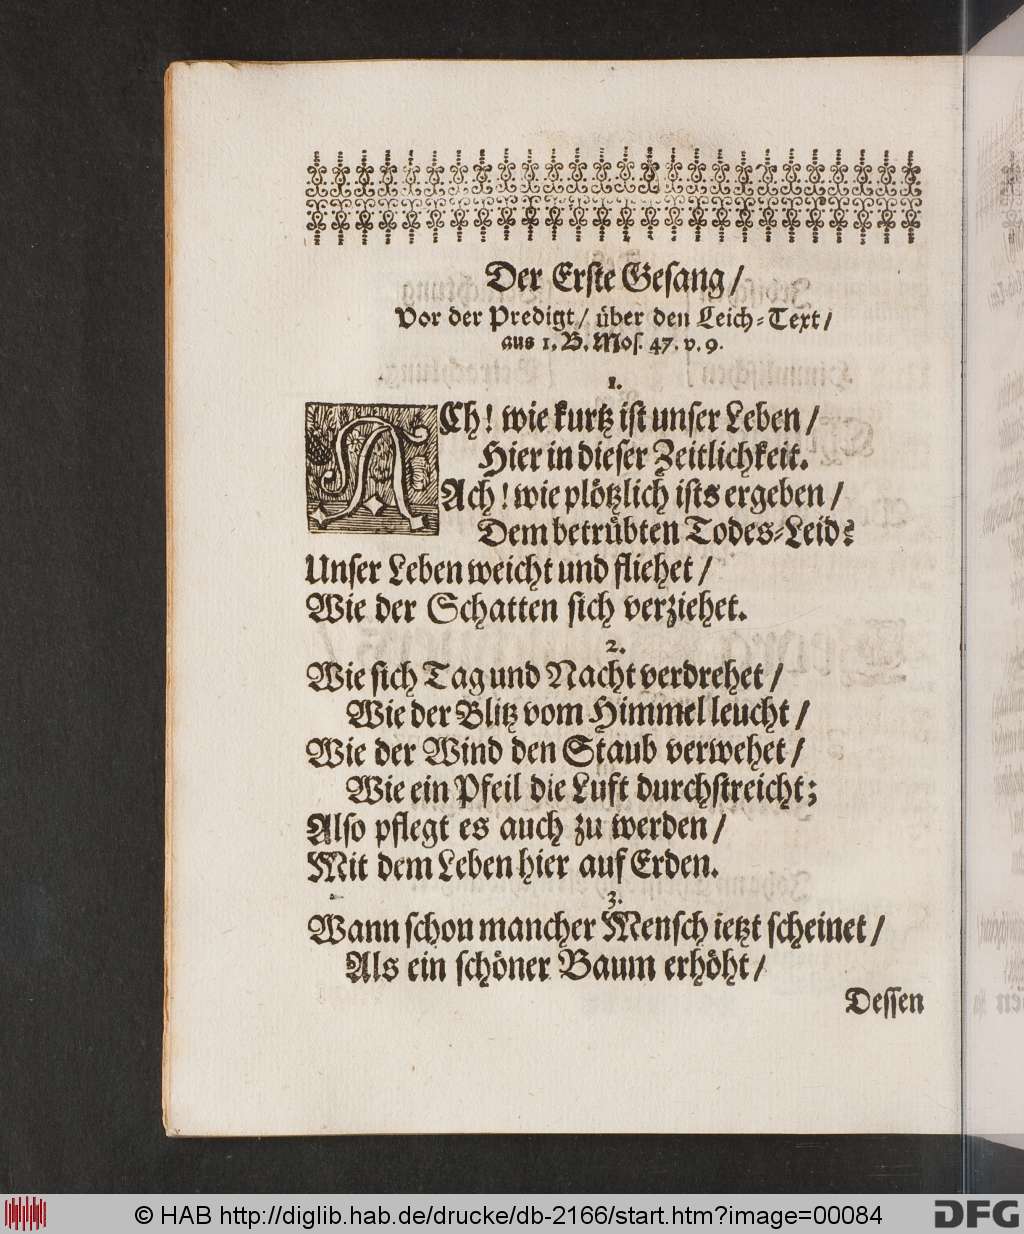 Der Erſte Geſang /
Vor der Predigt / über den Leich-Text /
aus 1. B. Moſ. 47. v. 9.
1.
ACh! wie kurtz iſt unſer Leben /
Hier in dieſer Zeitlichkeit.
Ach! wie plötzlich iſts ergeben /
Dem betrübten Todes-Leid?
Unſer Leben weicht und fliehet /
Wie der Schatten ſich verziehet.
2.
Wie ſich Tag und Nacht verdrehet /
Wie der Blitz vom Himmel leucht /
Wie der Wind den Staub verwehet /
Wie ein Pfeil die Luft durchſtreicht;
Alſo pflegt es auch zu werden /
Mit dem Leben hier auf Erden.
3.
Wann ſchon mancher Menſch ietzt ſcheinet /
Als ein ſchöner Baum erhöht /
Deſſen
© HAB http://diglib.hab.de/drucke/db-2166/start.htm?image=00084
DFG